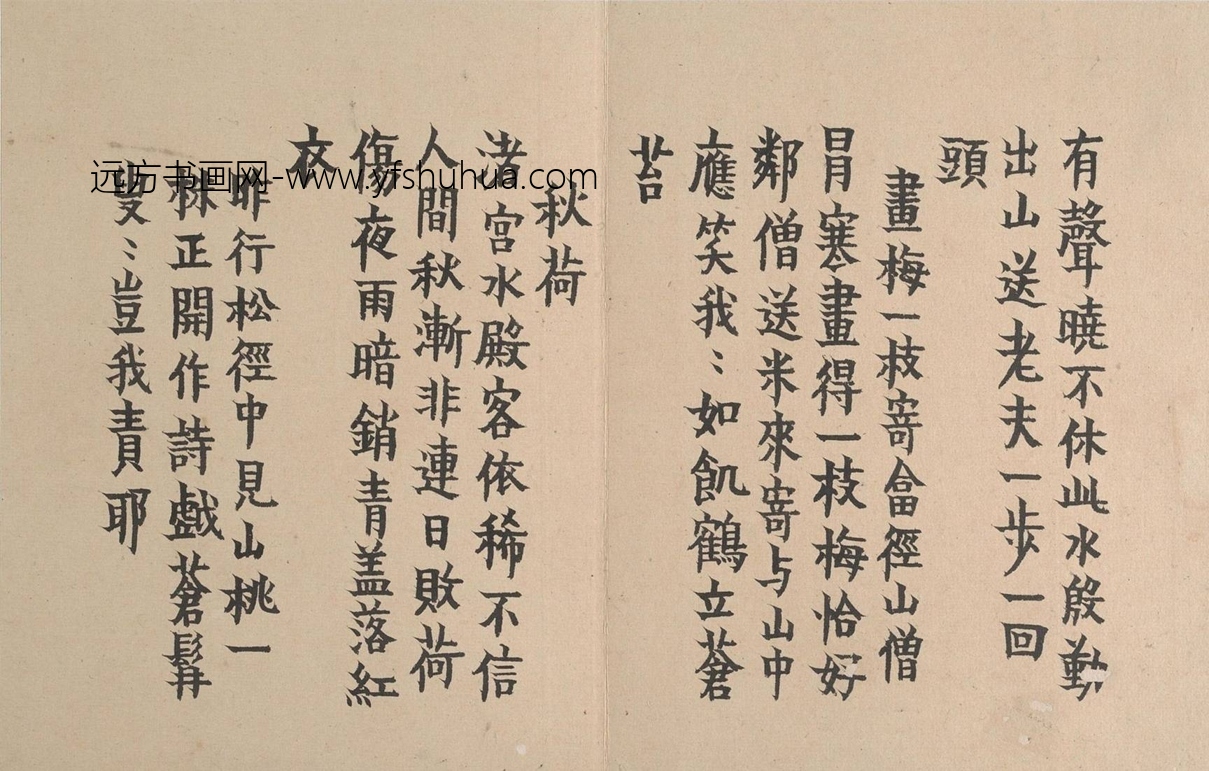 有聲曉不休此水殷勤
出山送老夫一步一回
頭
畫梅一枝寄畣徑山僧
冐寒畫得一枝梅恰好
鄰僧送米來寄与山中
應笑我〻如飢鶴立蒼
苔
秋荷
渚宮水殿客依稀不信
人間秋漸非連日敗荷
傷夜雨暗銷青盖落紅
衣
昨行松徑中見山桃一
林正開作詩戲蒼髯
叟〻豈我責耶
远方书画网-www.yfshuhua.com